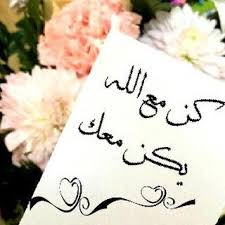 كن مع الله
يكن معك